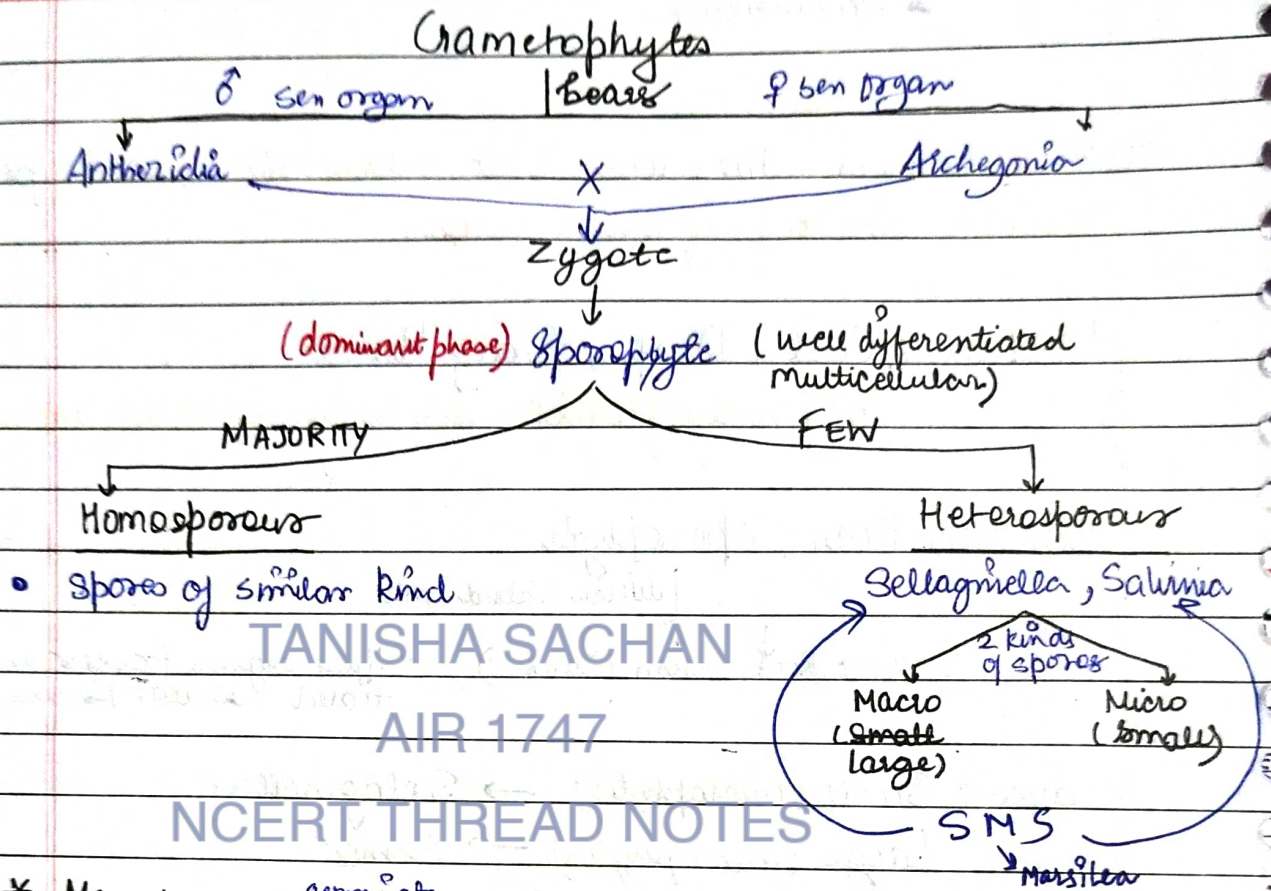 Gametophytes
♂ sex organ bears ♀ sex organ
Antheridia X Archegonia
Zygote
(dominant phase) Sporophyte (well differentiated
multicellular)
MAJORITY FEW
Homosporous Heterosporous
• Spores of similar kind Sellaginella, Salvinia
TANISHA SACHAN
2 kinds
of spores
Macro Micro
(small (small)
large)
AIR 1747
NCERT THREAD NOTES
SMS
Marsilea